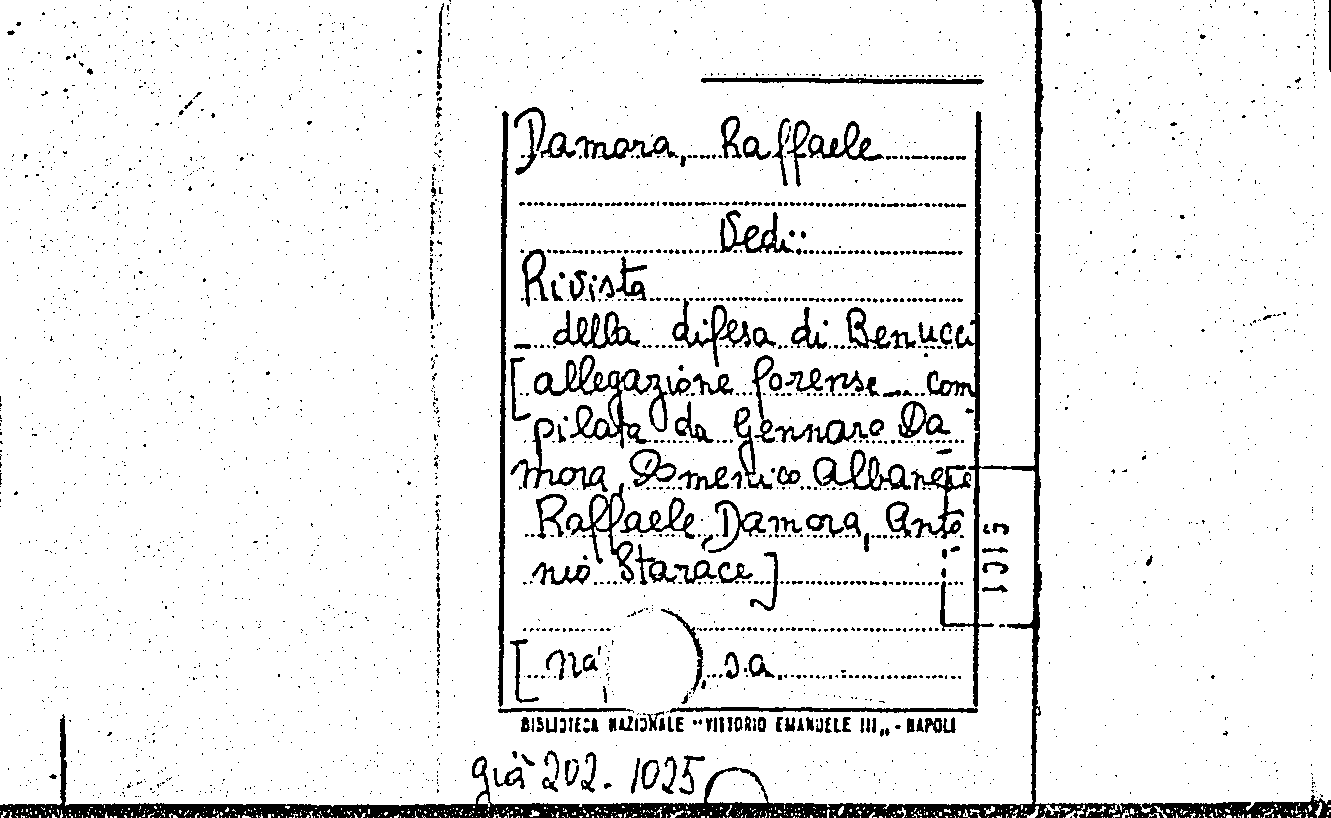 Damora, Raffaele
Vedi:
Rivista
_ della difesa di Benucci
[allegazione forense... com
pilata da Gennaro Da
mora, Domenico Albanese
Raffaele Damora, Anto
nio Starace]
[na
, s.a.
BIBLIOTECA NAZIONALE "VITTORIO EMANUELE III„ - NAPOLI
già 202. 1025